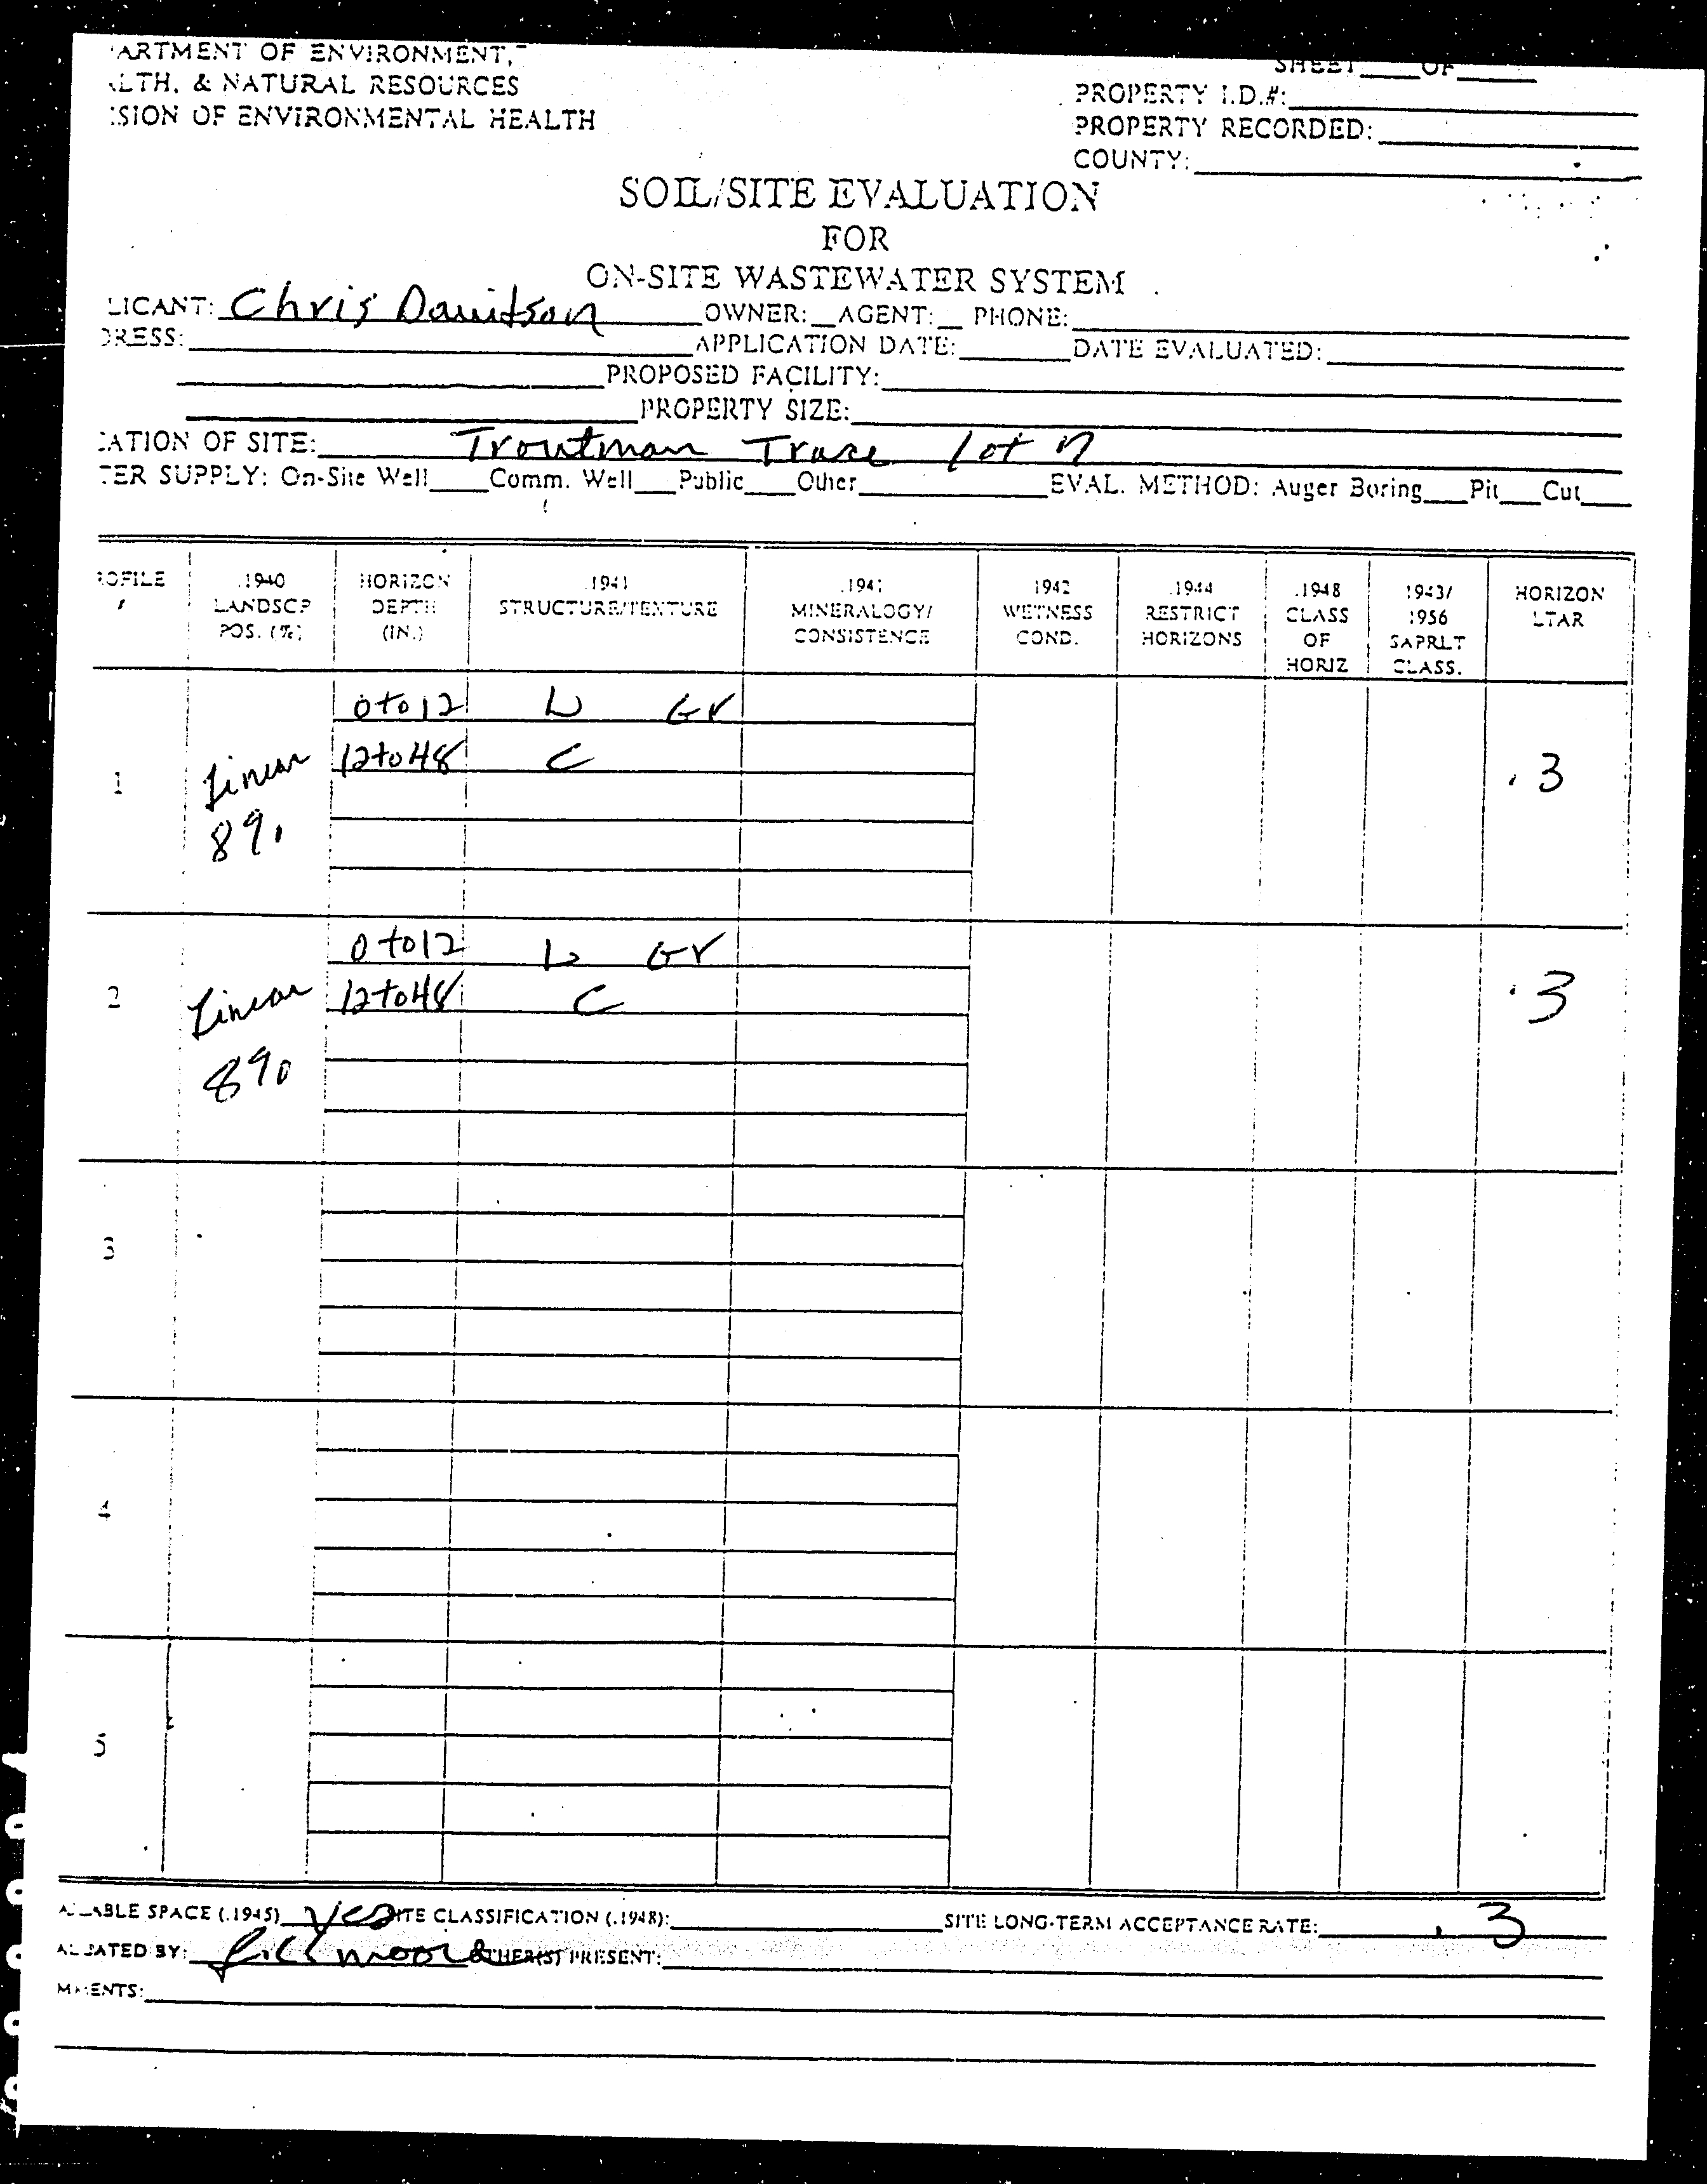 ARTMENT OF ENVIRONMENT,
LTH, & NATURAL RESOURCES
ISION OF ENVIRONMENTAL HEALTH
SHEET____OF____
PROPERTY I.D.#:
PROPERTY RECORDED:
COUNTY:
SOIL/SITE EVALUATION
FOR
ON-SITE WASTEWATER SYSTEM
LICANT: Chris Davidson OWNER:__AGENT:__ PHONE:
DRESS: APPLICATION DATE: DATE EVALUATED:
PROPOSED FACILITY:
PROPERTY SIZE:
ATION OF SITE: Troutman Trace Lot
TER SUPPLY: On-Site Well____Comm. Well___Public___Other____ EVAL. METHOD: Auger Boring___Pit___Cut___
ROFILE .1940 HORIZON .1941 .1941 1942 .1944 .1948 1943/ HORIZON
# LANDSCP DEPTH STRUCTURE/TEXTURE MINERALOGY/ WETNESS RESTRICT CLASS 1956 LTAR
POS. (%) (IN.) CONSISTENCE COND. HORIZONS OF SAPRLT
HORIZ CLASS.
0 to 12 L Gr
1 Linear 12 to 48 C .3
8%
0 to 12 L Gr
2 Linear 12 to 48 C .3
8%
3
4
5
LABLE SPACE (.1945) yes ITE CLASSIFICATION (.1948): SITE LONG-TERM ACCEPTANCE RATE: .3
ATED BY: OTHER(S) PRESENT:
MENTS: